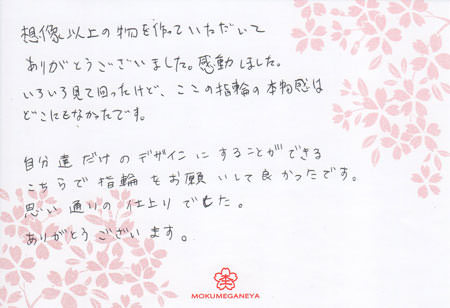 想像以上の物を作っていただいて
ありがとうございました。感動しました。
いろいろ見て回ったけど、ここの指輪の本物感は
どこにもなかたです。
自分達だけのデザインにすることができる
こちらで指輪をお願いして良かったです。
思い通りの仕上りでした。
ありがとうございます。
MOKUMEGANEYA